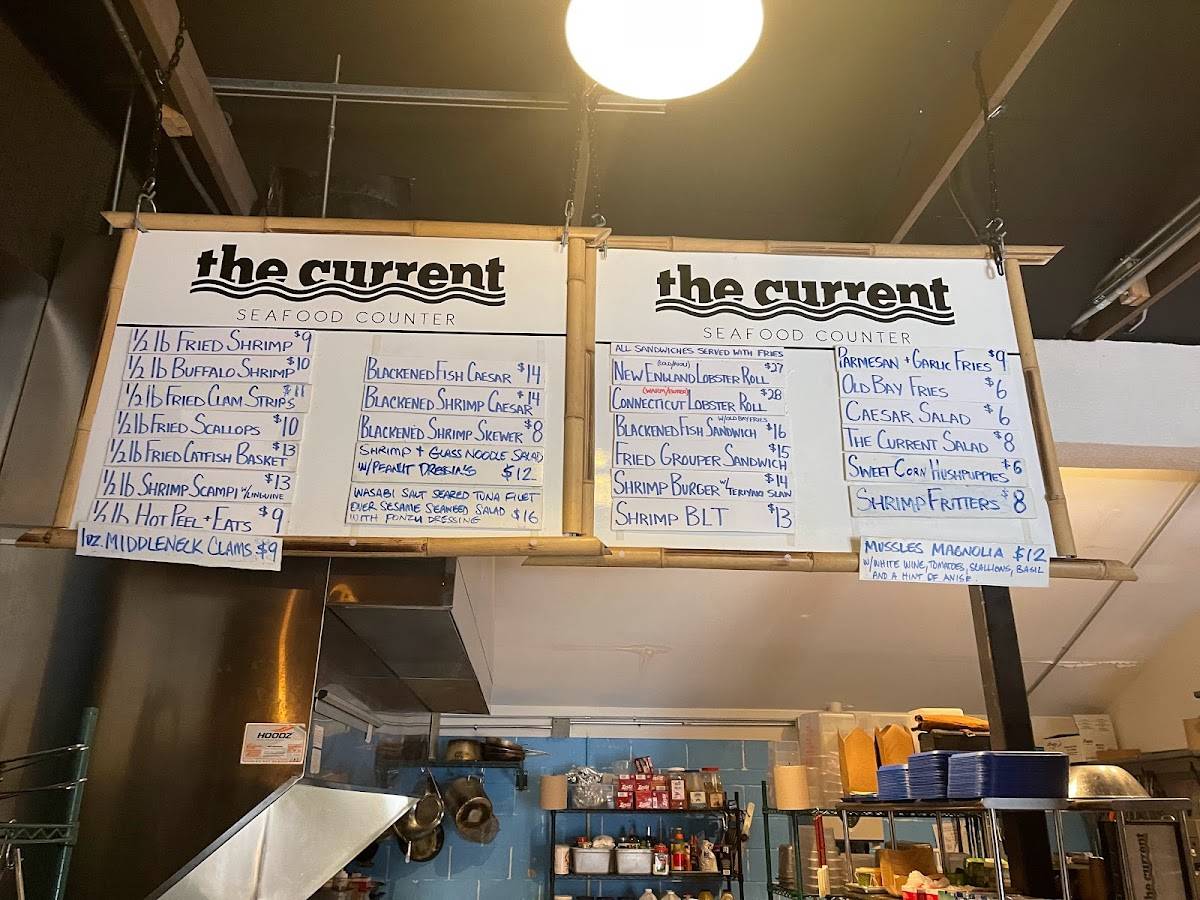 the current
SEAFOOD COUNTER
1/2 lb FRIED SHRIMP $9
1/2 lb BUFFALO SHRIMP $10
1/2 lb FRIED CLAM STRIPS $11
1/2 lb FRIED SCALLOPS $10
1/2 lb FRIED CATFISH BASKET $13
1/2 lb SHRIMP SCAMPI W/LINGUINE $13
1/2 lb HOT PEEL + EATS $9
1DZ. MIDDLENECK CLAMS $9
BLACKENED FISH CAESAR $14
BLACKENED SHRIMP CAESAR $14
BLACKENED SHRIMP SKEWER $8
SHRIMP + GLASS NOODLE SALAD
W/PEANUT DRESSING $12
WASABI SALT SEARED TUNA FILET
OVER SESAME SEAWEED SALAD
WITH PONZU DRESSING $16
the current
SEAFOOD COUNTER
ALL SANDWICHES SERVED WITH FRIES
(COLD/MAYO)
NEW ENGLAND LOBSTER ROLL $27
(WARM/BUTTER)
CONNECTICUT LOBSTER ROLL $28
W/OLD BAY FRIES
BLACKENED FISH SANDWICH $16
FRIED GROUPER SANDWICH $15
SHRIMP BURGER W/ TERIYAKI SLAW $14
SHRIMP BLT $13
PARMESAN + GARLIC FRIES $9
OLD BAY FRIES $6
CAESAR SALAD $6
THE CURRENT SALAD $8
SWEET CORN HUSHPUPPIES $6
SHRIMP FRITTERS $8
MUSSLES MAGNOLIA $12
W/WHITE WINE, TOMATOES, SCALLIONS, BASIL
AND A HINT OF ANISE.
HOODZ
the current